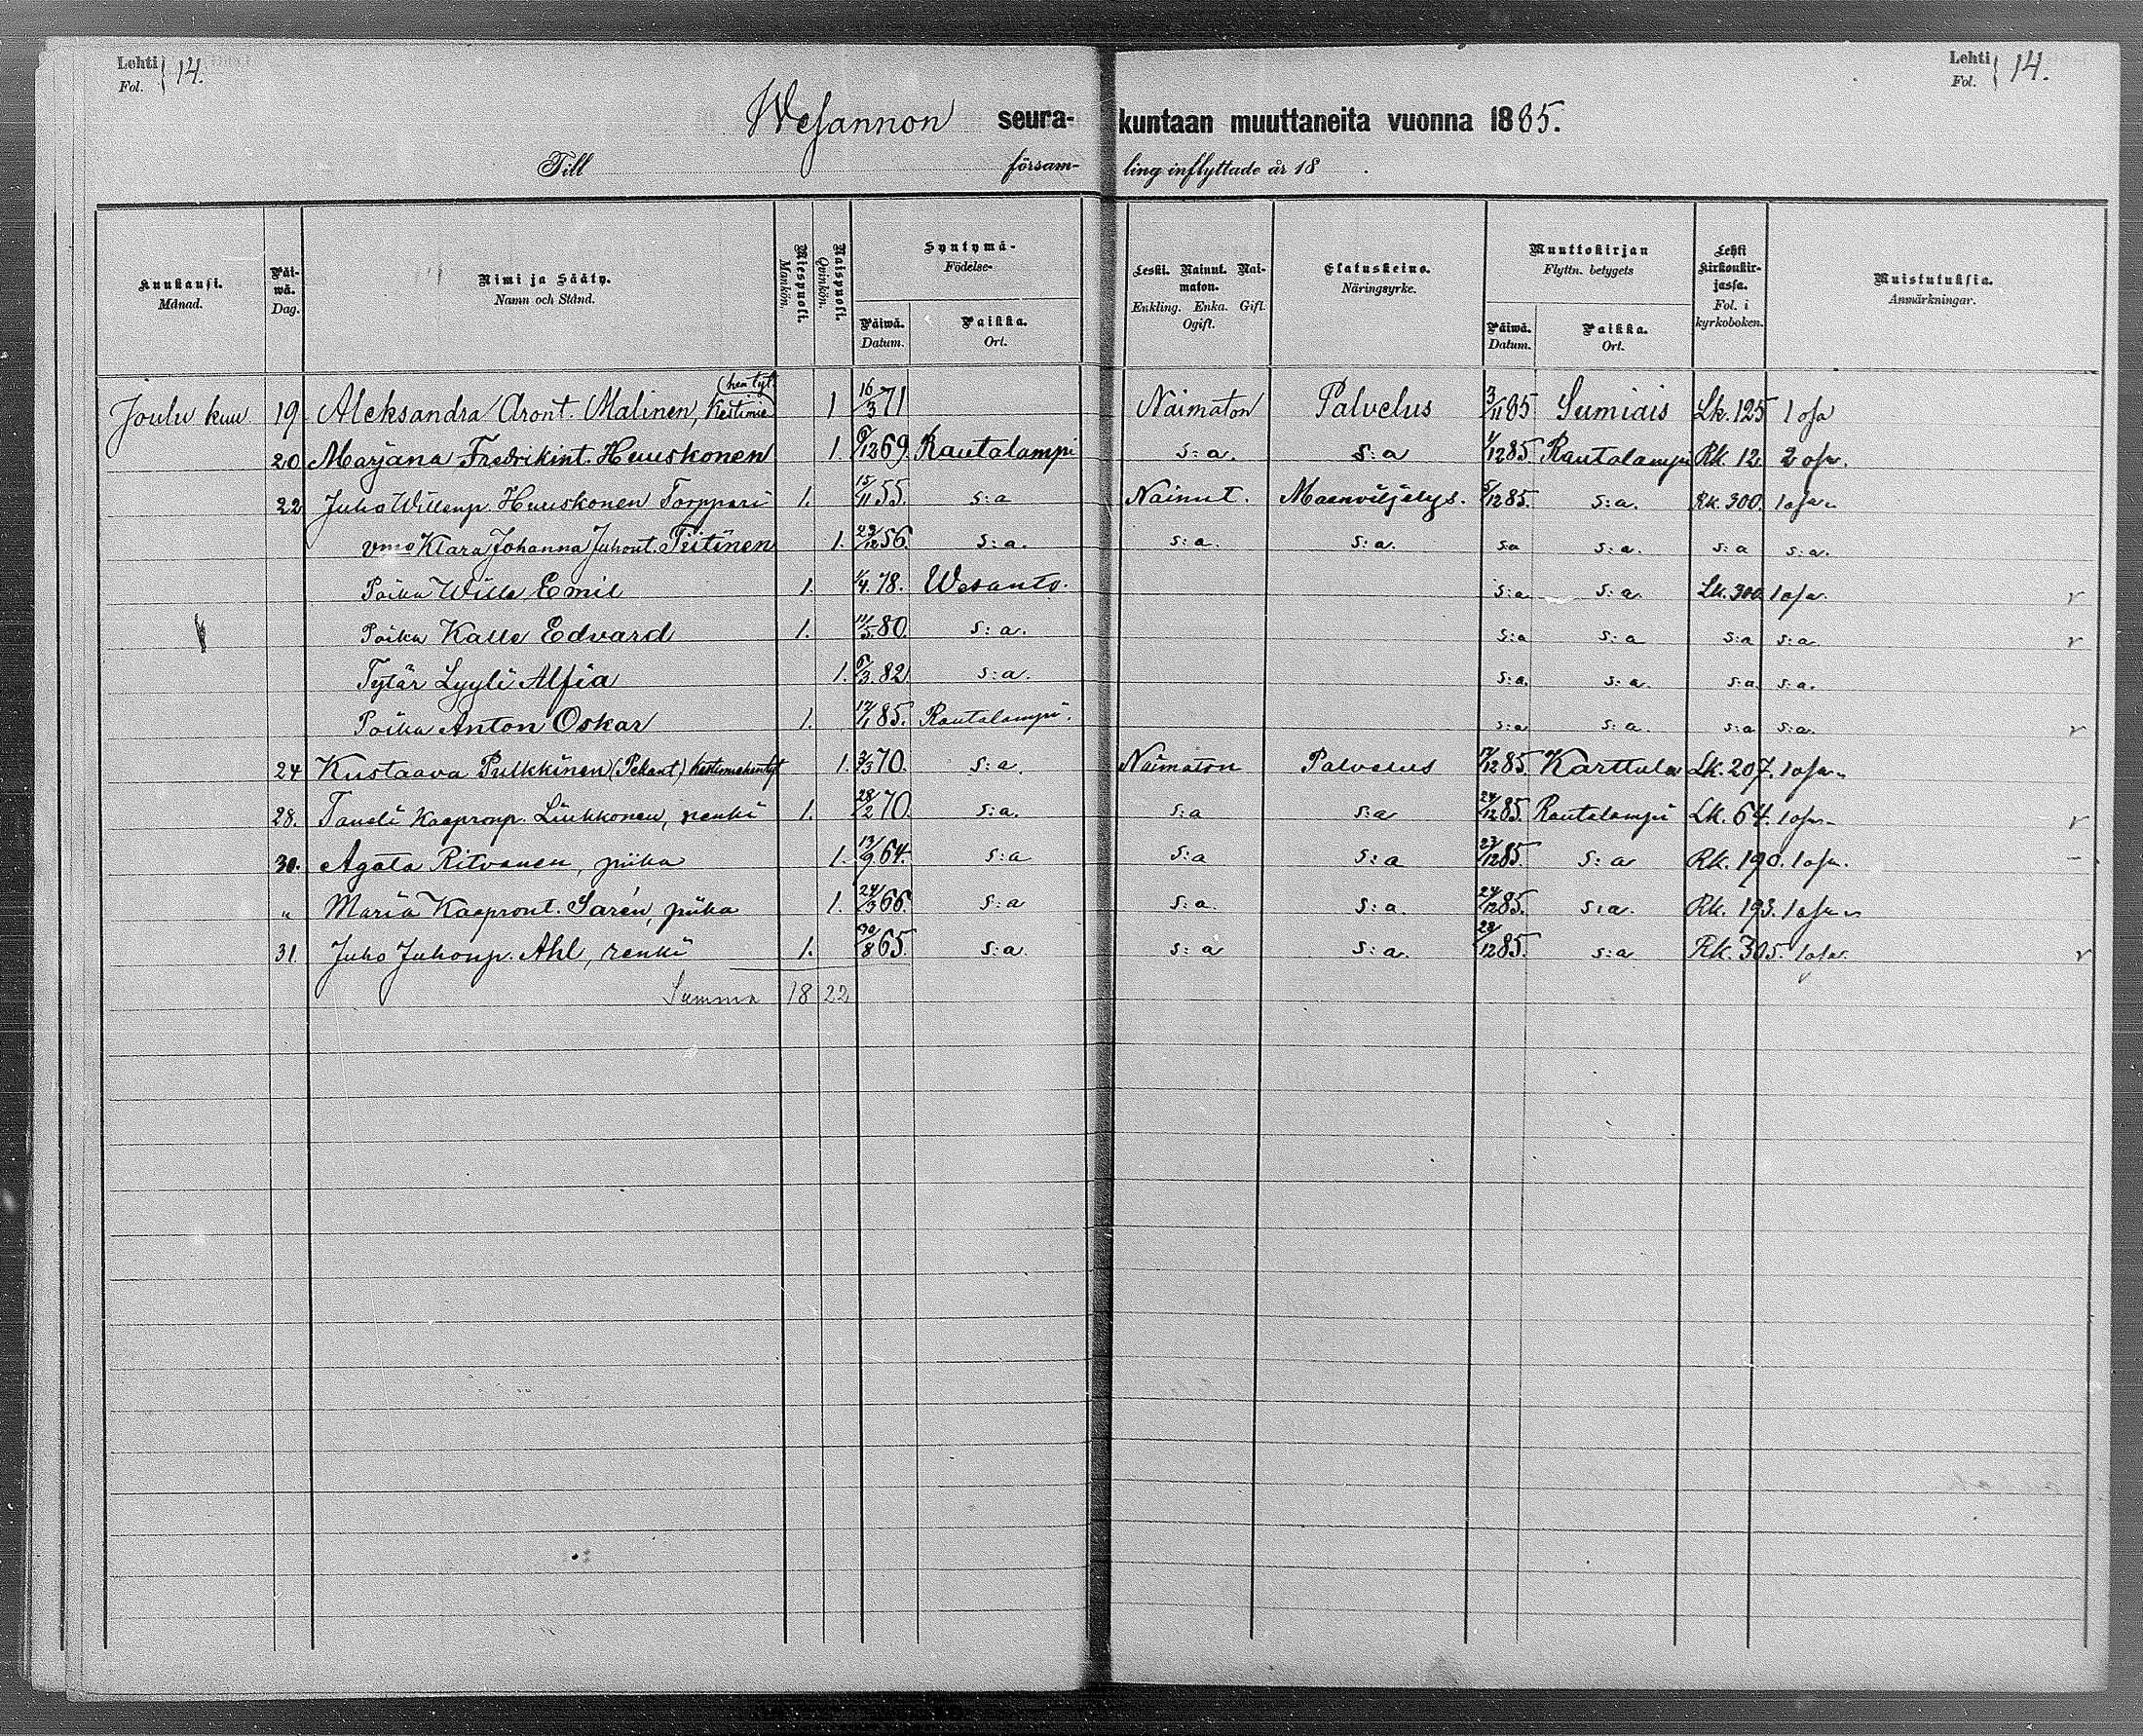 Lehti
Fol. } 14.
Lehti
Fol. } 14.
Wesannon seura- kuntaan muuttaneita vuonna 1885.
Till församling inflyttade år 18 .
Kuukausi. Månad. Päiwä. Dag. Nimi ja Sääty. Namn och Stånd. Miespuoli. Mankön. Naispuoli. Qvinkön. Syntymä- Födelse- Päiwä. Datum. Paikka. Ort. Leski. Nainut. Naimaton. Enkling. Enka. Gift. Ogift. Elatuskeino. Näringsyrke. Muuttokirjan Flyttn. betygets Päiwä. Datum. Paikka. Ort. Lehti kirkonkirjassa. Fol. i kyrkoboken. Muistutuksia. Anmärkningar.
Joulu kuu 19 Aleksandra Aront. Malinen, Kestinie (hen tyt. 1 16/3 71 Naimaton Palvelus 3/11 85 Sumiais Lk. 125 1 osa
20 Marjana Fredrikint. Huuskonen 1. 6/12 69 Rautalampi s:a. s:a 1/12 85. Rautalampi Rk. 12. 2 osa.
22 Juho Willenp. Huuskonen Torppari 1. 15/11 55. s:a Nainut. Maanviljelys. 5/12 85. s:a. Rk. 300. 1 osa.
vmo Klara Johanna Juhont. Tiitinen 1. 23/12 56. s:a. s:a. s:a. s:a s:a. s:a s:a.
Poika Wille Emil 1. 1/4 78. Wesanto. s:a s:a Lk. 300 1 osa.
Poika Kalle Edvard 1. 11/5 80. s:a. s:a s:a s:a s:a.
Tytär Lyyli Alfia 1. 6/3 82. s:a. s:a. s:a. s:a s:a.
Poika Anton Oskar 1. 12/1 85. Rautalampi. s:a s:a. s:a s:a.
24 Kustaava Pulkkinen (Pekant) Kestimiehentyt 1. 3/3 70. s:a. Naimaton Palvelus 17/12 85. Karttula Lk. 207. 1 osa.
28. Taneli Kaapronp. Liukkonen, renki 1. 28/2 70. s:a. s:a s:a 24/12 85. Rautalampi Lk. 64. 1 osa.
30. Agata Ritvanen, piika 1. 13/9 64. s:a s:a s:a 23/12 85. s:a Rk. 190. 1 osa.
" Maria Kaapront. Sarén, piika 1. 24/3 66. s:a s:a. s:a. 24/12 85. s:a. Rk. 193. 1 osa
31. Juho Juhonp. Ahl, renki 1. 30/8 65. s:a. s:a s:a. 28/12 85. s:a Rk. 305. 1 osa.
Summa 18 22